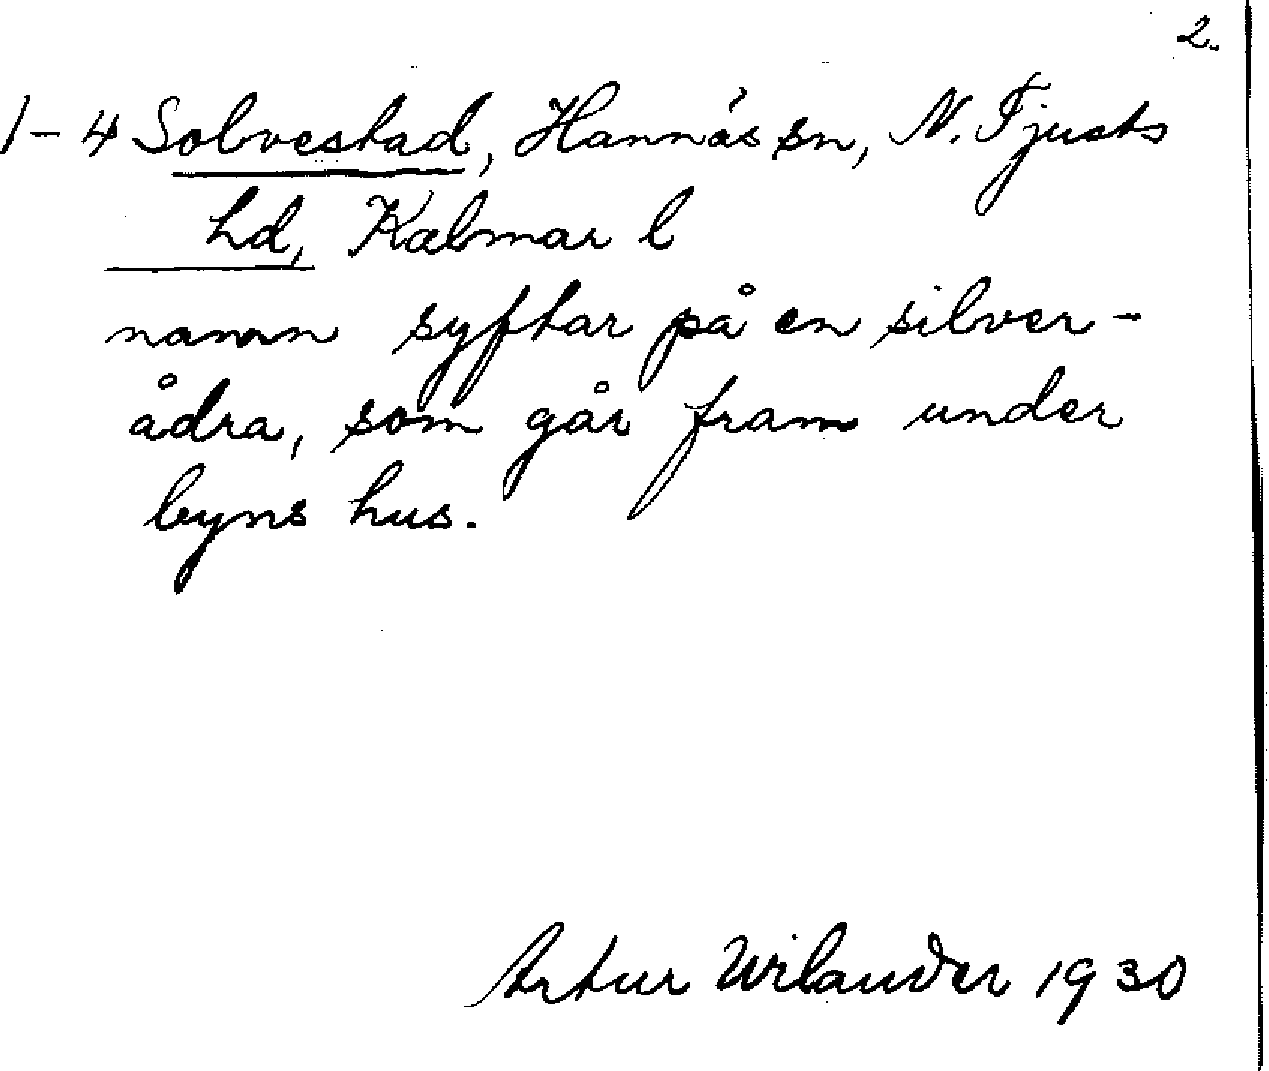 2.
1-4 Solvestad, Hannäs sn, N. Tjusts
hd, Kalmar l
namn syftar på en silver-
ådra, som går fram under
byns hus.
Artur Wilander 1930